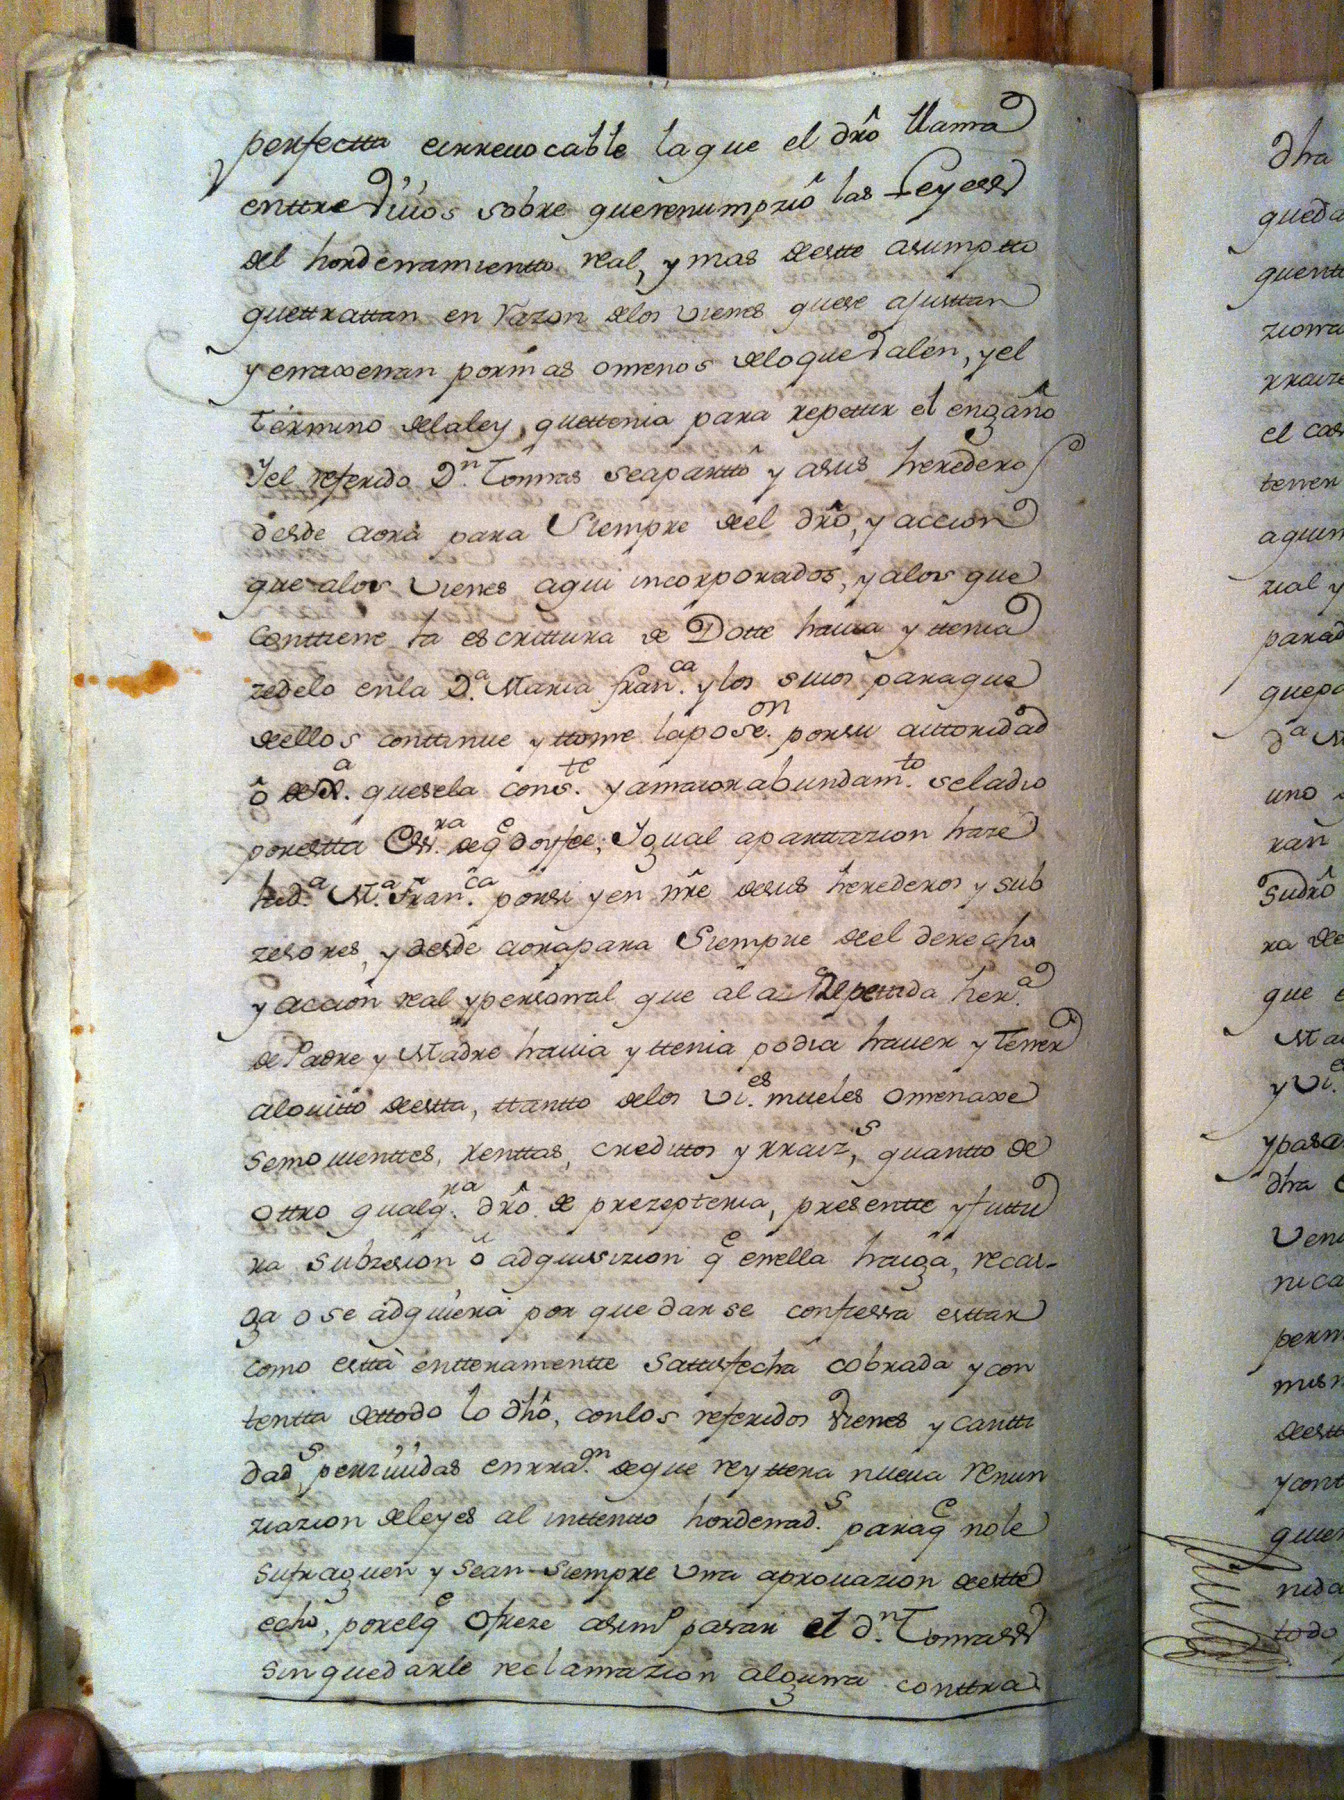 perfectta eirrevocable laque el dr̂o llama
enttre vivos sobre querenumpziô las Leyess
del hordenamientto real, y mas deestte asumptto
quettrattan en razon delos vienes quese ajusttan
y enaxenan pormas omenos deloque valen, y el
termino delaley, quettenia para repettir el engaño
Y el referido Dn. Tomas seaparttô y asus heredero s
desde aora para Siempre deel dr̂o, y accion
que alos vienes aqui incorporados, yalos que
Conttiene la escrittura de Dotte havia y ttenia
zedelo enla Da. Maria franca. y los suios paraque
deellos conttinue y ttome laposeon. porsu auttoridad
ô deJa. quesela conste. yamaiorabundamto. seladio
poresta Essra. deqe doyfee; Igual aparttazion haze
lad. Ma. Franca. porsi y en nr̂e desus herederos y sub
zesores, y desde aorapara Siempre deel derecho
y accion real ypersonal que ala Repettida hera.
de Padre y Madre havia y ttenia podia haver y Tener
alovitto deestta, ttantto delos vies. muebles omenaxe
semovienttes, renttas, creditos y rraizs, quantto de
ottro qualqra. dr̂o de prezeptenia, presentte y futtu
ra subzesion ô adquisizion qe enella haiga, recai-
ga o se adquiera por quedarse confiessa esttar
como estta enttêramentte sattisfecha cobrada y con
tentta dettodo lo dhô, conlos referidos vienes y cantti
dads percivîdas enrraon. deque reyttera nueva renun
ziazion deleyes al inttentto hordenads. paraqe nole
sufraguen y sean siempre una aprovazion deestte
echo, porelqe ofreze asimo pasar el dn. Tomass
sin quedarle reclamazion alguna conttra
dha
queda
quentt
ziona
rraize
el cas
tener
aquin
zial y
parad
quepa
da M
uno
ran
Sudr̂o
ra de
que e
Ma
y vies
ypasa
dha
Ven
nica
perm
mism
deestt
y cont
quier
nida
todo